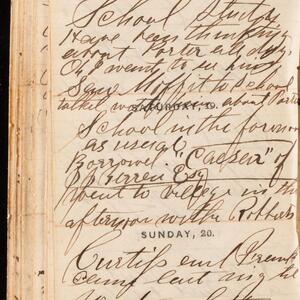 School
Have been thinking
about Porter all day.
Oh I want to see him
Saw Moffit to School
talked about Porter
SATURDAY, 19.
School in the forenoon
as usual
Borrowed "Caesar" of
Esq
Went to village in the
afternoon with
SUNDAY, 20.
Curtiss and Frank
came last